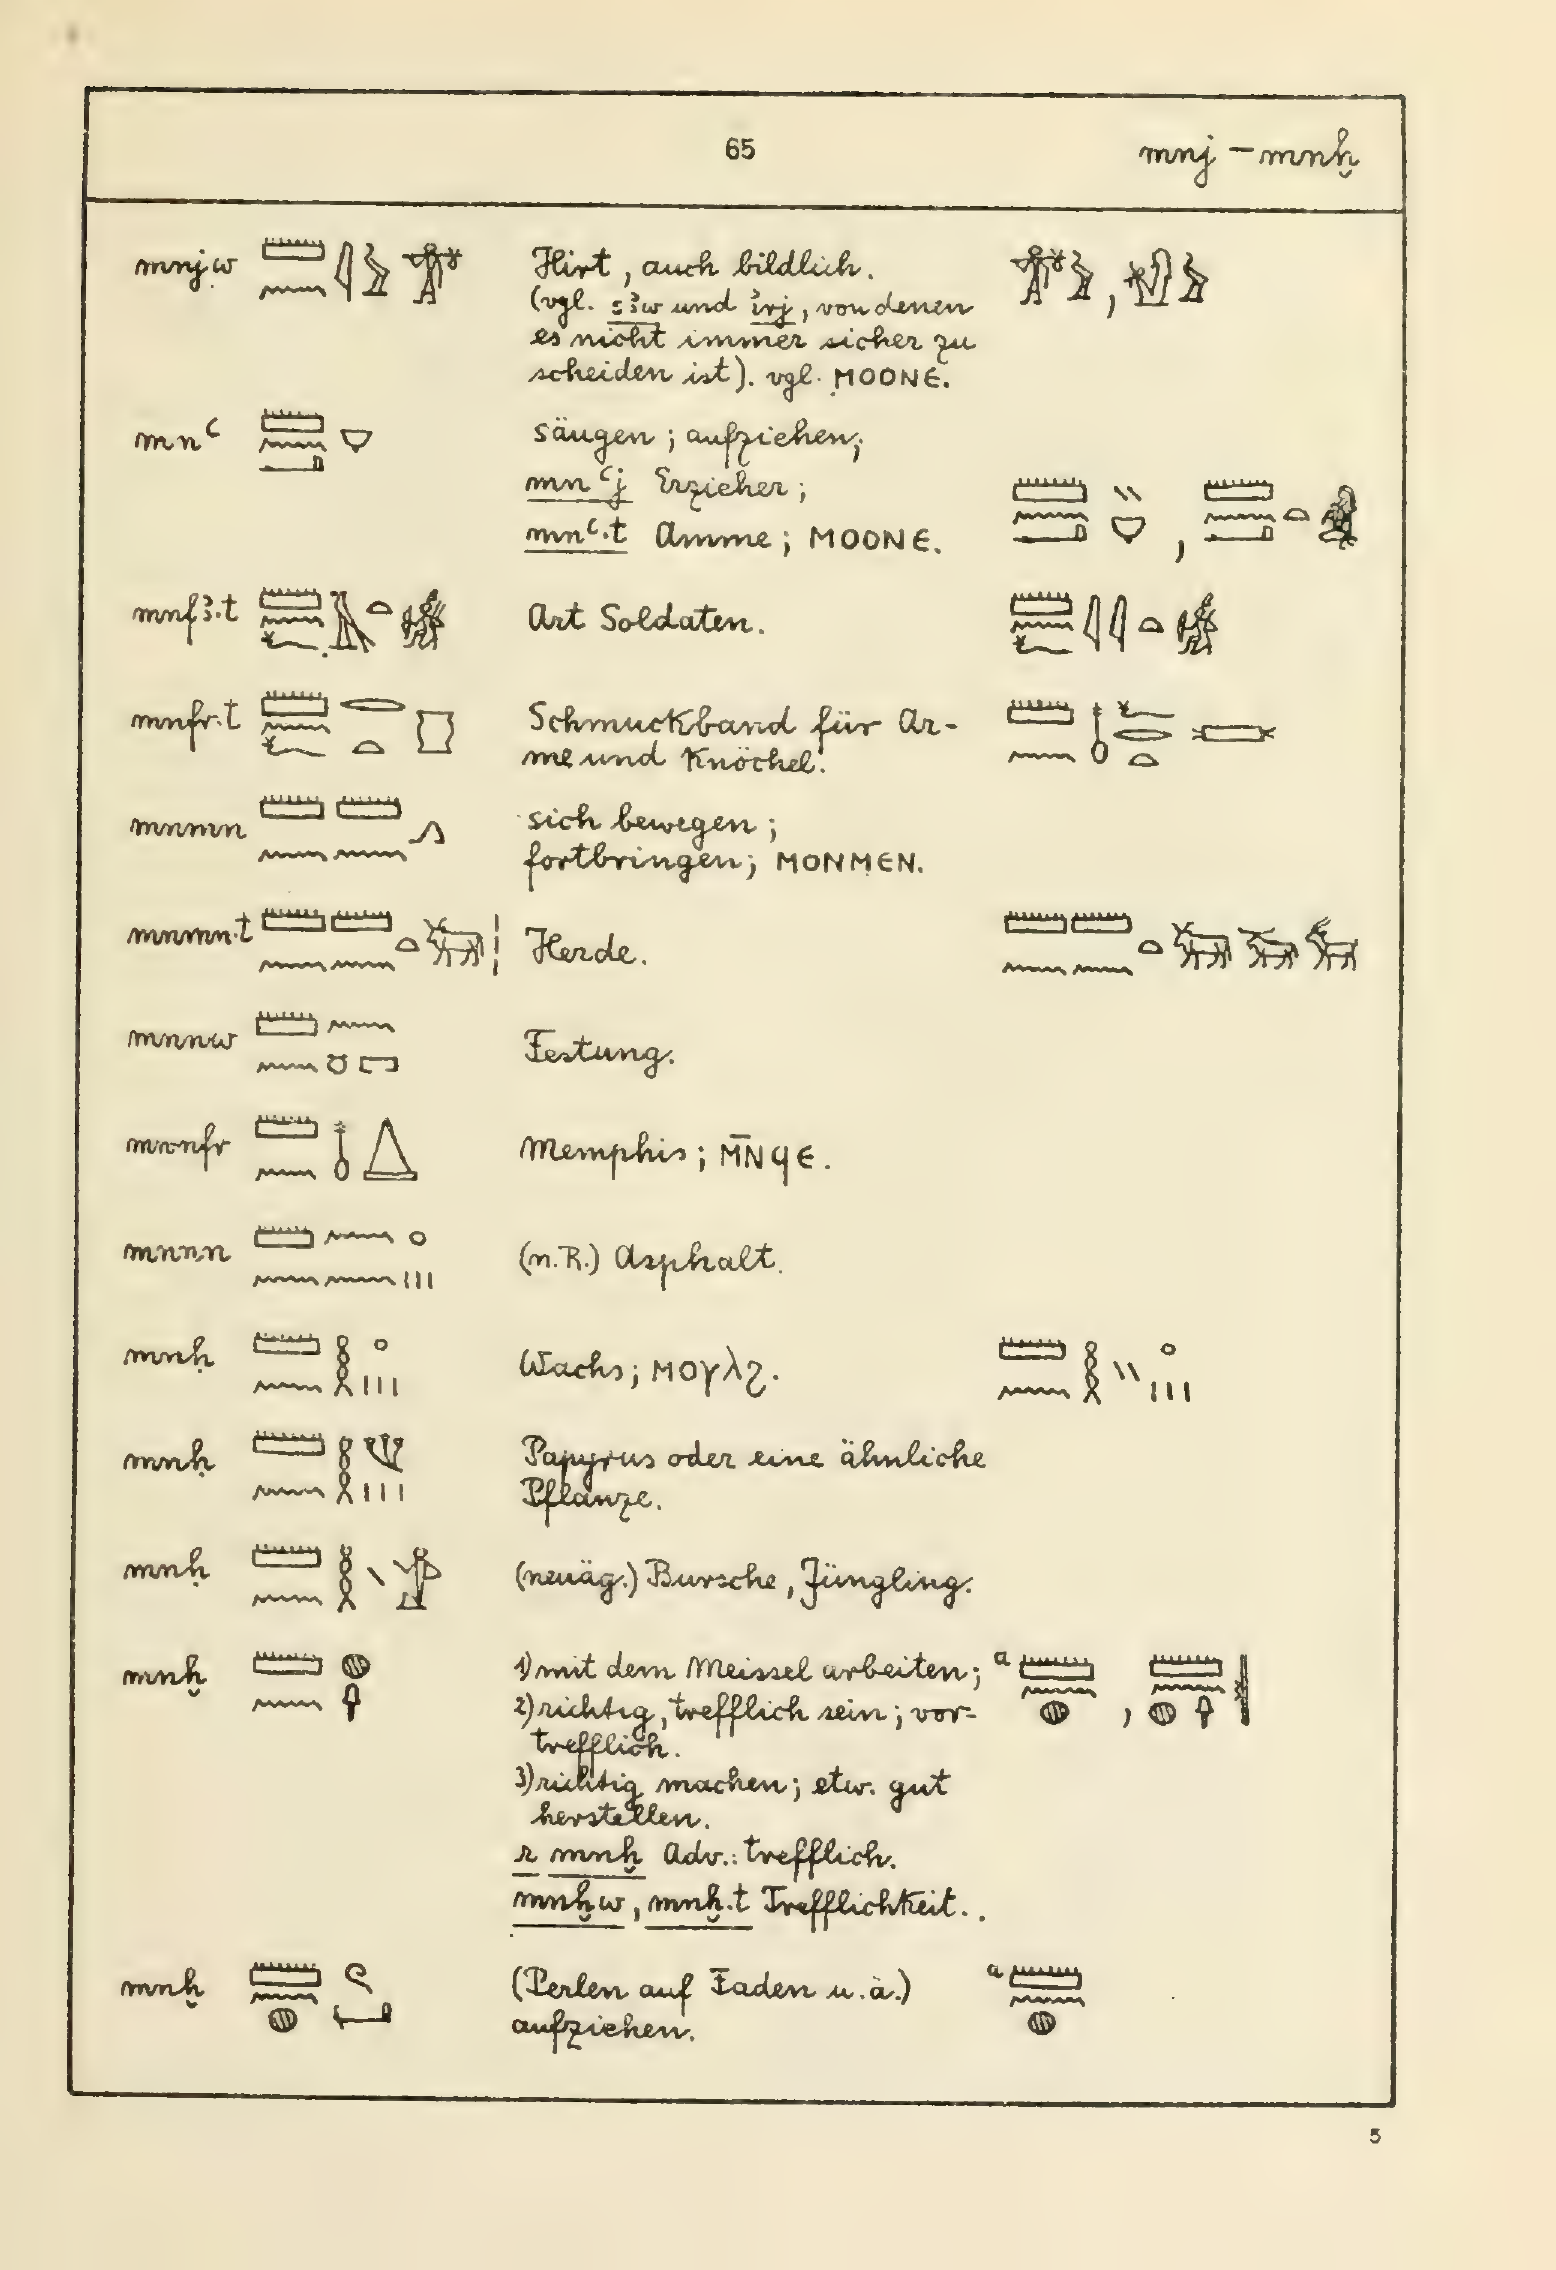 65
mnj – mnḫ
mnj.w Hirt, auch bildlich.
(vgl. sꜣw und ỉrj, von denen
es nicht immer sicher zu
scheiden ist). vgl. ⲙⲟⲟⲛⲉ.
mnꜥ säugen; aufziehen;
mnꜥj Erzieher;
mnꜥ.t Amme; ⲙⲟⲟⲛⲉ.
mnfꜣ.t Art Soldaten.
mnfr.t Schmuckband für Ar-
me und Knöchel.
mnmn sich bewegen;
fortbringen; ⲙⲟⲛⲙⲉⲛ.
mnmn.t Herde.
mnnw Festung.
mn-nfr Memphis; ⲙ̄ⲛϥⲉ.
mnnn (n.R.) Asphalt.
mnḥ Wachs; ⲙⲟⲩⲗϩ.
mnḥ Papyrus oder eine ähnliche
Pflanze.
mnḥ (neuäg.) Bursche, Jüngling.
mnḫ 1) mit dem Meissel arbeiten; a
2) richtig, trefflich sein; vor-
trefflich.
3) richtig machen; etw. gut
herstellen.
r mnḫ Adv.: trefflich.
mnḫw, mnḫ.t Trefflichkeit.
mnḫ (Perlen auf Faden u.ä.) a
aufziehen.
5